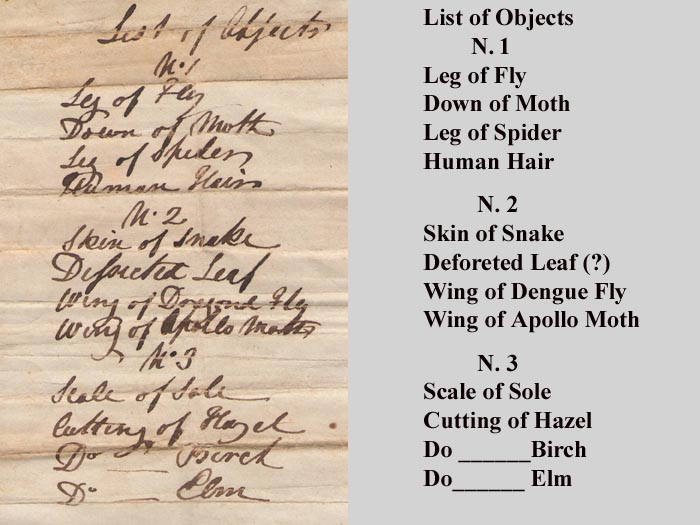 List of Objects
N. 1
Leg of Fly
Down of Moth
Leg of Spider
Human Hair
N. 2
Skin of Snake
Leaf
Wing of Fly
Wing of Apollo Moth
N. 3
Scale of Sole
Cutting of Hazel
Do ___ Birch
Do ___ Elm
List of Objects
N. 1
Leg of Fly
Down of Moth
Leg of Spider
Human Hair
N. 2
Skin of Snake
Deforeted Leaf (?)
Wing of Dengue Fly
Wing of Apollo Moth
N. 3
Scale of Sole
Cutting of Hazel
Do ______Birch
Do______ Elm